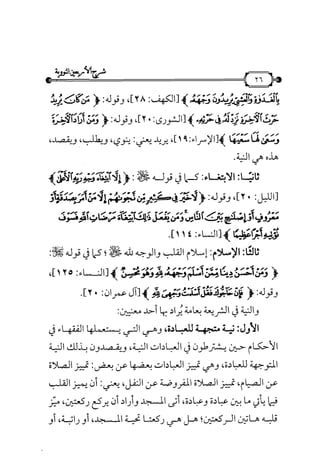 شرح الأربعين النووية
٢٦
بِالْغَدَوٰةِ وَالْعَشِيِّ يُرِيدُونَ وَجْهَهُ ﴾ [الكهف: ٢٨]، وقوله: ﴿ مَن كَانَ يُرِيدُ
حَرْثَ الْآخِرَةِ نَزِدْ لَهُ فِي حَرْثِهِ ﴾ [الشورى: ٢٠]، وقوله: ﴿ وَمَنْ أَرَادَ الْآخِرَةَ
وَسَعَىٰ لَهَا سَعْيَهَا ﴾ [الإسراء: ١٩]، يريد يعني: ينوي، ويطلب، ويقصد،
هذه هي النية.
ثانيًا: الابتغاء: كما في قوله ﷻ: ﴿ إِلَّا ابْتِغَاءَ وَجْهِ رَبِّهِ الْأَعْلَىٰ ﴾
[الليل: ٢٠]، وقوله: ﴿ لَّا خَيْرَ فِي كَثِيرٍ مِّن نَّجْوَاهُمْ إِلَّا مَنْ أَمَرَ بِصَدَقَةٍ أَوْ
مَعْرُوفٍ أَوْ إِصْلَاحٍ بَيْنَ النَّاسِ وَمَن يَفْعَلْ ذَٰلِكَ ابْتِغَاءَ مَرْضَاتِ اللَّهِ فَسَوْفَ
نُؤْتِيهِ أَجْرًا عَظِيمًا ﴾ [النساء: ١١٤].
ثالثًا: الإسلام: إسلام القلب والوجه لله ﷻ؛ كما في قوله ﷻ:
﴿ وَمَنْ أَحْسَنُ دِينًا مِّمَّنْ أَسْلَمَ وَجْهَهُ لِلَّهِ وَهُوَ مُحْسِنٌ ﴾ [النساء: ١٢٥]،
وقوله: ﴿ فَإِنْ حَاجُّوكَ فَقُلْ أَسْلَمْتُ وَجْهِيَ لِلَّهِ ﴾ [آل عمران: ٢٠].
والنية في الشريعة بعامة يُراد بها أحد معنيين:
الأول: نية متجهة للعبادة، وهي التي يستعملها الفقهاء في
الأحكام حين يشترطون في العبادات النية، ويقصدون بذلك النية
المتوجهة للعبادة، وهي تمييز العبادات بعضها عن بعض: تمييز الصلاة
عن الصيام، تمييز الصلاة المفروضة عن النفل، يعني: أن يميز القلب
فيما يأتي ما بين عبادة وعبادة، أتى المسجد وأراد أن يركع ركعتين، ميّز
قلبه هاتين الركعتين؛ هل هي ركعتا تحية المسجد، أو راتبة، أو